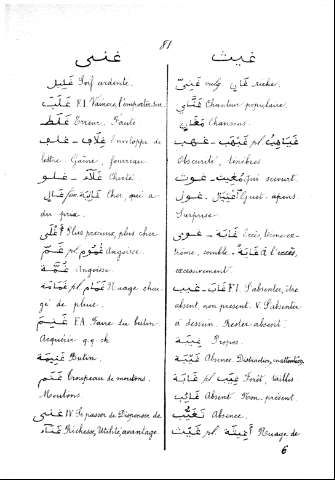 81
غنى غيث
غَلِيل Soif ardente.
غَلَبَ F.I. Vaincre, l'emporter sur
غَلَط Erreur. Faute
غِلَاف - غلف Enveloppe de
lettre. Gaîne, fourreau
غَلَاء - غلو Cherté
غَالٍ fém غَالِيَة Cher, qui a
du prix.
أَغْلَى Plus précieux, plus cher
غَمّ pl. غُمُوم Angoisse.
غُمَّة Angoisse
غَمَامَة pl. غَمَام Nuage char-
gé de pluie.
غَنِمَ F.A. Faire du butin.
Acquérir q.q. ch.
غَنِيمَة Butin.
غَنَم Troupeau de moutons.
Moutons
غنى IV Se passer de. Dispenser de
غَنَاء Richesse, Utilité, avantage
غَنِيّ vulg. غَانٍ riche.
Chanteur populaire
Chansons
غَيْهَب pl. غَيَاهِب - غهب
Obscurité, ténèbres
مُغِيث - غوث Qui secourt.
غول Guet-apens.
Surprise
غَايَة - غوى Excès, terme ex-
trême, comble. à l'excès,
excessivement
غَابَ - غيب F.I. S'absenter, être
absent, non présent. V. S'absenter
à dessein. Rester absent.
غِيبَة Propos.
غَيْبَة Absence. Distraction,
غَابَة pl. Forêt, taillis
غَائِب Absent. Non présent.
تَغَيُّب Absence.
غَيْث pl. Nuage de
6